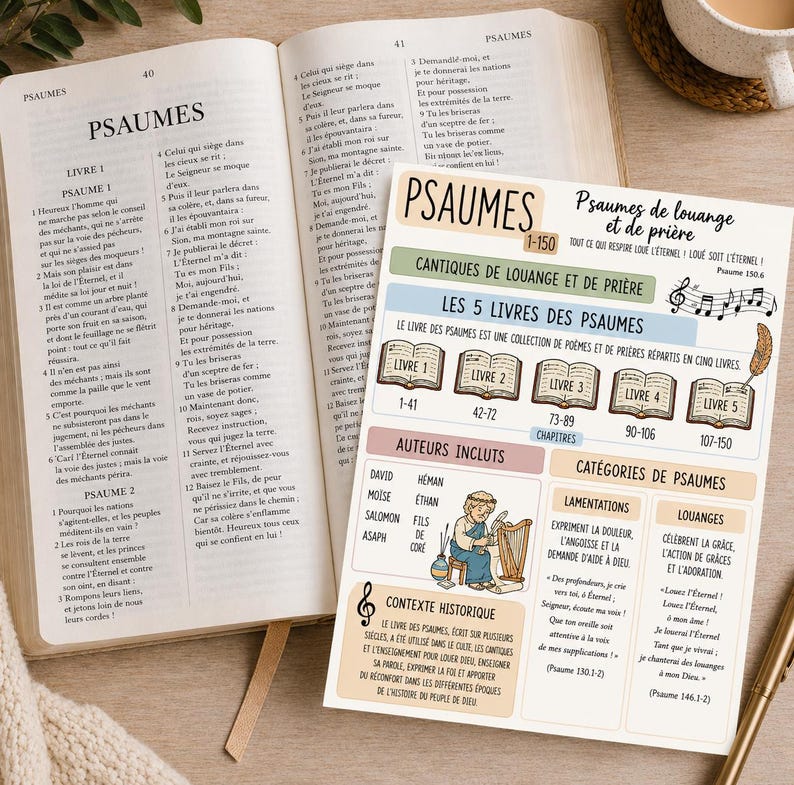 PSAUMES
40
PSAUMES
LIVRE 1
PSAUME 1
1 Heureux l'homme qui
ne marche pas selon le conseil
des méchants, qui ne s'arrête
pas sur la voie des pécheurs,
et qui ne s'assied pas
sur les sièges des moqueurs !
2 Mais son plaisir est dans
la loi de l'Éternel, et il
médite sa loi jour et nuit !
3 Il est comme un arbre planté
près d'un courant d'eau, qui
porte son fruit en sa saison,
et dont le feuillage ne se flétrit
point : tout ce qu'il fait
réussira.
4 Il n'en est pas ainsi
des méchants ; mais ils sont
comme la paille que le vent
emporte.
5 C'est pourquoi les méchants
ne subsisteront pas dans le
jugement, ni les pécheurs dans
l'assemblée des justes.
6 Carl l'Éternel connait
la voie des justes ; mais la voie
des méchants périra.
PSAUME 2
1 Pourquoi les nations
s'agitent-elles, et les peuples
méditent-ils en vain ?
2 Les rois de la terre
se lèvent, et les princes
se consultent ensemble
contre l'Éternel et contre
son oint, en disant :
3 Rompons leurs liens,
et jetons loin de nous
leurs cordes !
4 Celui qui siège dans
les cieux se rit ;
Le Seigneur se moque
d'eux.
5 Puis il leur parlera dans
sa colère, et, dans sa fureur,
il les épouvantara :
6 J'ai établi mon roi sur
Sion, ma sainte montagne.
7 Je publierai le décret :
L'Éternel m'a dit :
Tu es mon Fils ;
Moi, aujourd'hui,
je t'ai engendré.
8 Demande-moi, et
je te donnerai les nations
pour héritage,
Et pour possession
les extrémités de la terre.
9 Tu les briseras
d'un sceptre de fer ;
Tu les briseras comme
un vase de potier.
10 Maintenant donc,
rois, soyez sages ;
Recevez instruction,
vous qui jugez la terre.
11 Servez l'Éternel avec
crainte, et réjouissez-vous
avec tremblement.
12 Baisez le Fils, de peur
qu'il ne s'irrite, et que vous
ne périssiez dans le chemin ;
Car sa colère s'enflamme
bientôt. Heureux tous ceux
qui se confient en lui !
41
PSAUMES
4 Celui qui siège dans
les cieux se rit ;
Le Seigneur se moque
d'eux.
5 Puis il leur parlera dans
sa colère, et, dans sa fureur,
il les épouvantara :
6 J'ai établi mon roi sur
Sion, ma sainte montagne.
7 Je publierai le décret :
L'Éternel m'a dit :
Tu es mon Fils ;
Moi, aujourd'hui,
je t'ai engendré.
8 Demande-moi, et
je te donnerai les
pour héritage,
Et pour possession
les extrémités
9 Tu les briseras
d'un sceptre
Tu les briseras
un vase de
10 Maintenant
rois, soyez
Recevez
vous qui
11 Servez l'É
crainte, et
avec
12 Baisez le
3 Demandlé-moi, et
je te donnerai les nations
pour héritage,
Et pour possession
les extrémités de la terre.
9 Tu les briseras
d'un sceptre de fer ;
Tu les briseras comme
un vase de potier.
liens,
confient en lui !
PSAUMES
1-150
Psaumes de louange
et de prière
TOUT CE QUI RESPIRE LOUE L'ÉTERNEL ! LOUÉ SOIT L'ÉTERNEL !
Psaume 150.6
CANTIQUES DE LOUANGE ET DE PRIÈRE
LES 5 LIVRES DES PSAUMES
LE LIVRE DES PSAUMES EST UNE COLLECTION DE POÈMES ET DE PRIÈRES RÉPARTIS EN CINQ LIVRES.
LIVRE 1
LIVRE 2
LIVRE 3
LIVRE 4
LIVRE 5
1-41
42-72
73-89
90-106
107-150
CHAPITRES
AUTEURS INCLUTS
DAVID
MOÏSE
SALOMON
ASAPH
HÉMAN
ÉTHAN
FILS
DE
CORÉ
CONTEXTE HISTORIQUE
LE LIVRE DES PSAUMES, ÉCRIT SUR PLUSIEURS
SIÈCLES, A ÉTÉ UTILISÉ DANS LE CULTE, LES CANTIQUES
ET L'ENSEIGNEMENT POUR LOUER DIEU, ENSEIGNER
SA PAROLE, EXPRIMER LA FOI ET APPORTER
DU RÉCONFORT DANS LES DIFFÉRENTES ÉPOQUES
DE L'HISTOIRE DU PEUPLE DE DIEU.
CATÉGORIES DE PSAUMES
LAMENTATIONS
EXPRIMENT LA DOULEUR,
L'ANGOISSE ET LA
DEMANDE D'AIDE À DIEU.
« Des profondeurs, je crie
vers toi, ô Éternel ;
Seigneur, écoute ma voix !
Que ton oreille soit
attentive à la voix
de mes supplications ! »
(Psaume 130.1-2)
LOUANGES
CÉLÈBRENT LA GRÂCE,
L'ACTION DE GRÂCES
ET L'ADORATION.
«Louez l'Éternel !
Louez l'Éternel,
ô mon âme !
Je louerai l'Éternel
Tant que je vivrai ;
je chanterai des louanges
à mon Dieu. »
(Psaume 146.1-2)